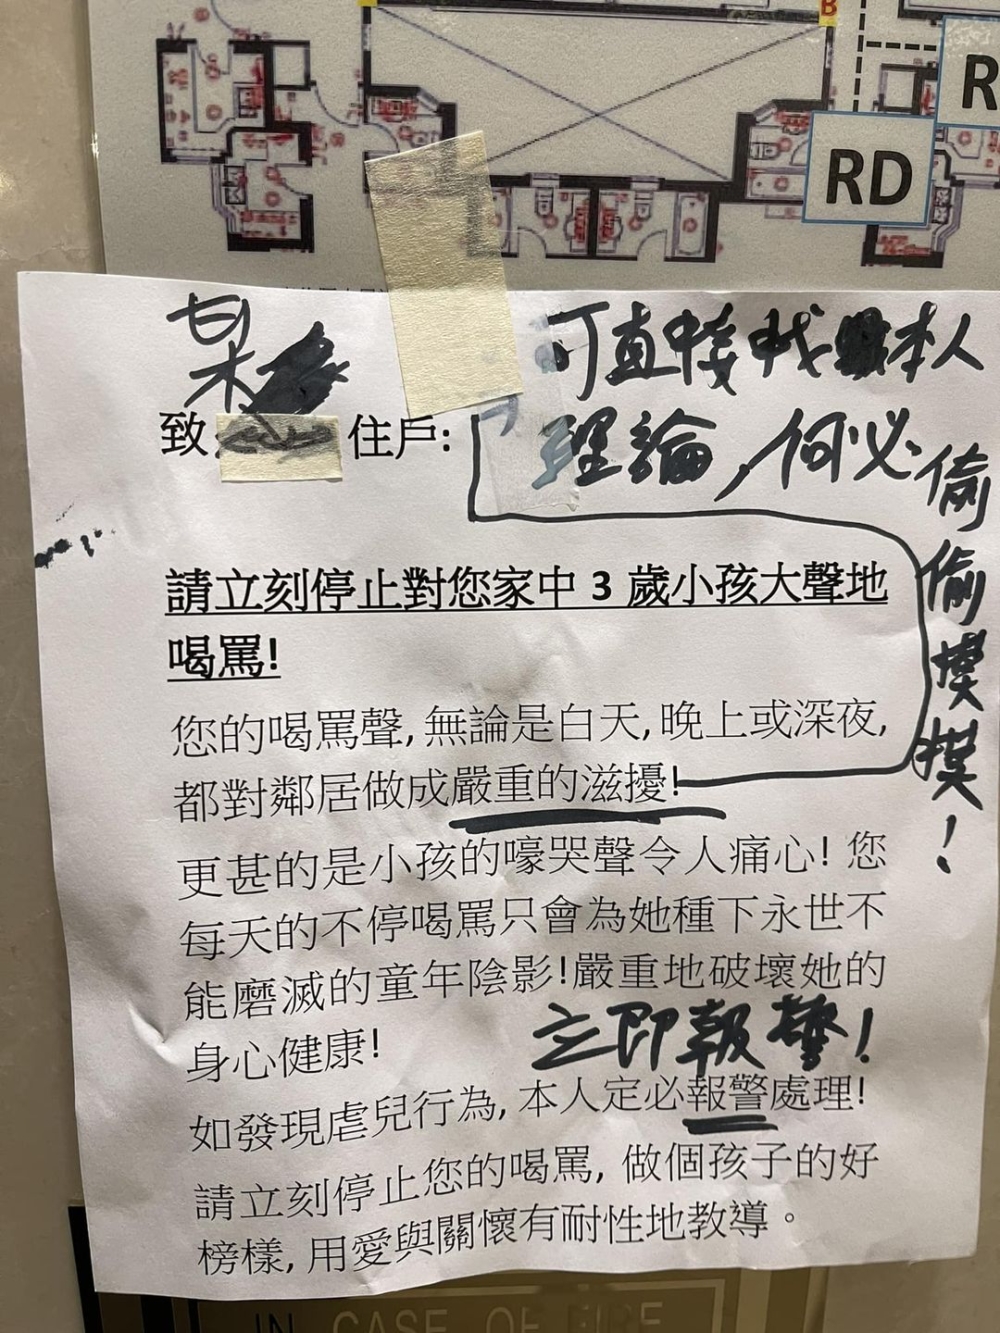 B
R
RD
某
可直接找本人
理論，何必
偷
偷
摸
摸
！
致
住戶:
請立刻停止對您家中 3 歲小孩大聲地
喝罵!
您的喝罵聲, 無論是白天, 晚上或深夜,
都對鄰居做成嚴重的滋擾!
更甚的是小孩的嚎哭聲令人痛心! 您
每天的不停喝罵只會為她種下永世不
能磨滅的童年陰影!嚴重地破壞她的
身心健康!
立即報警！
如發現虐兒行為, 本人定必報警處理!
請立刻停止您的喝罵, 做個孩子的好
榜樣, 用愛與關懷有耐性地教導。
IN CASE OF FIRE